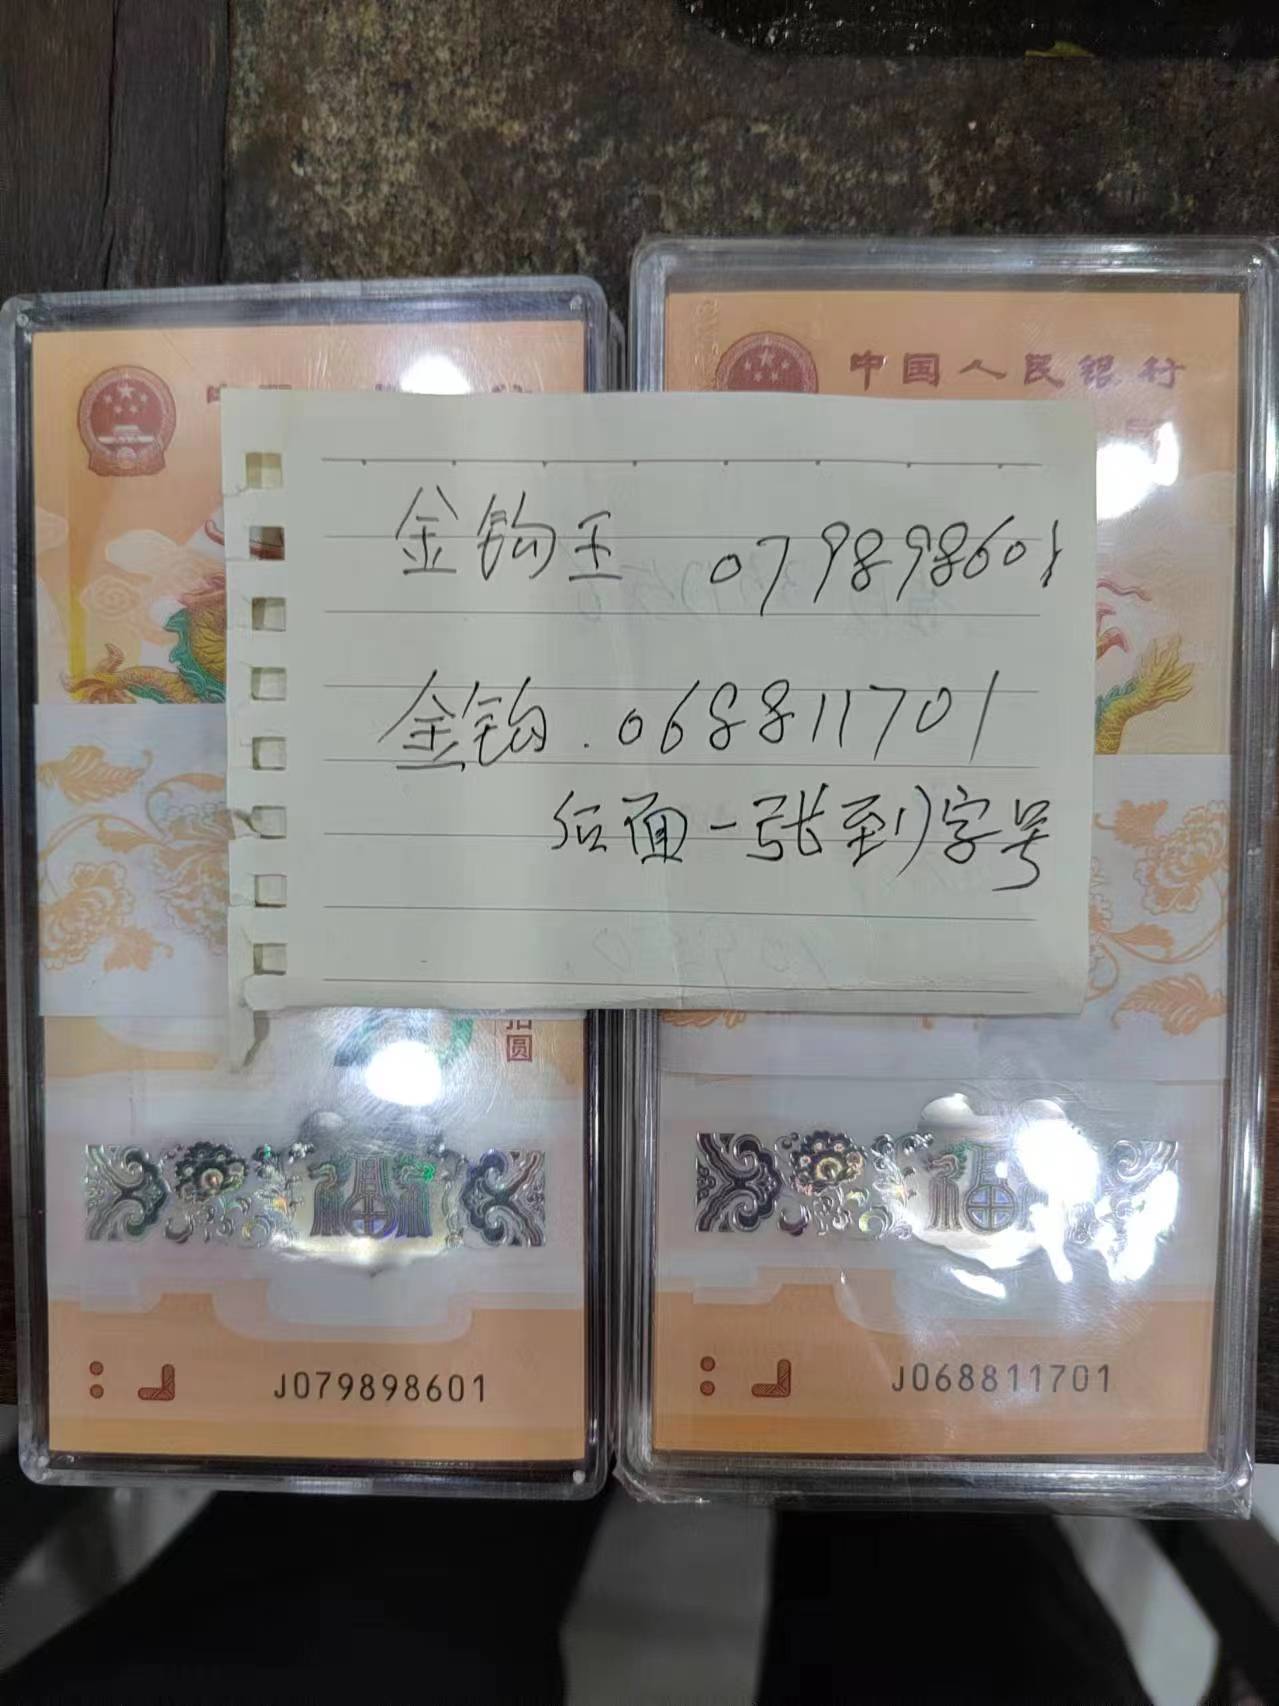 中国人民银行
金钩王 079898601
金钩.068811701
后面一张到字号
拾圆
J079898601
J068811701